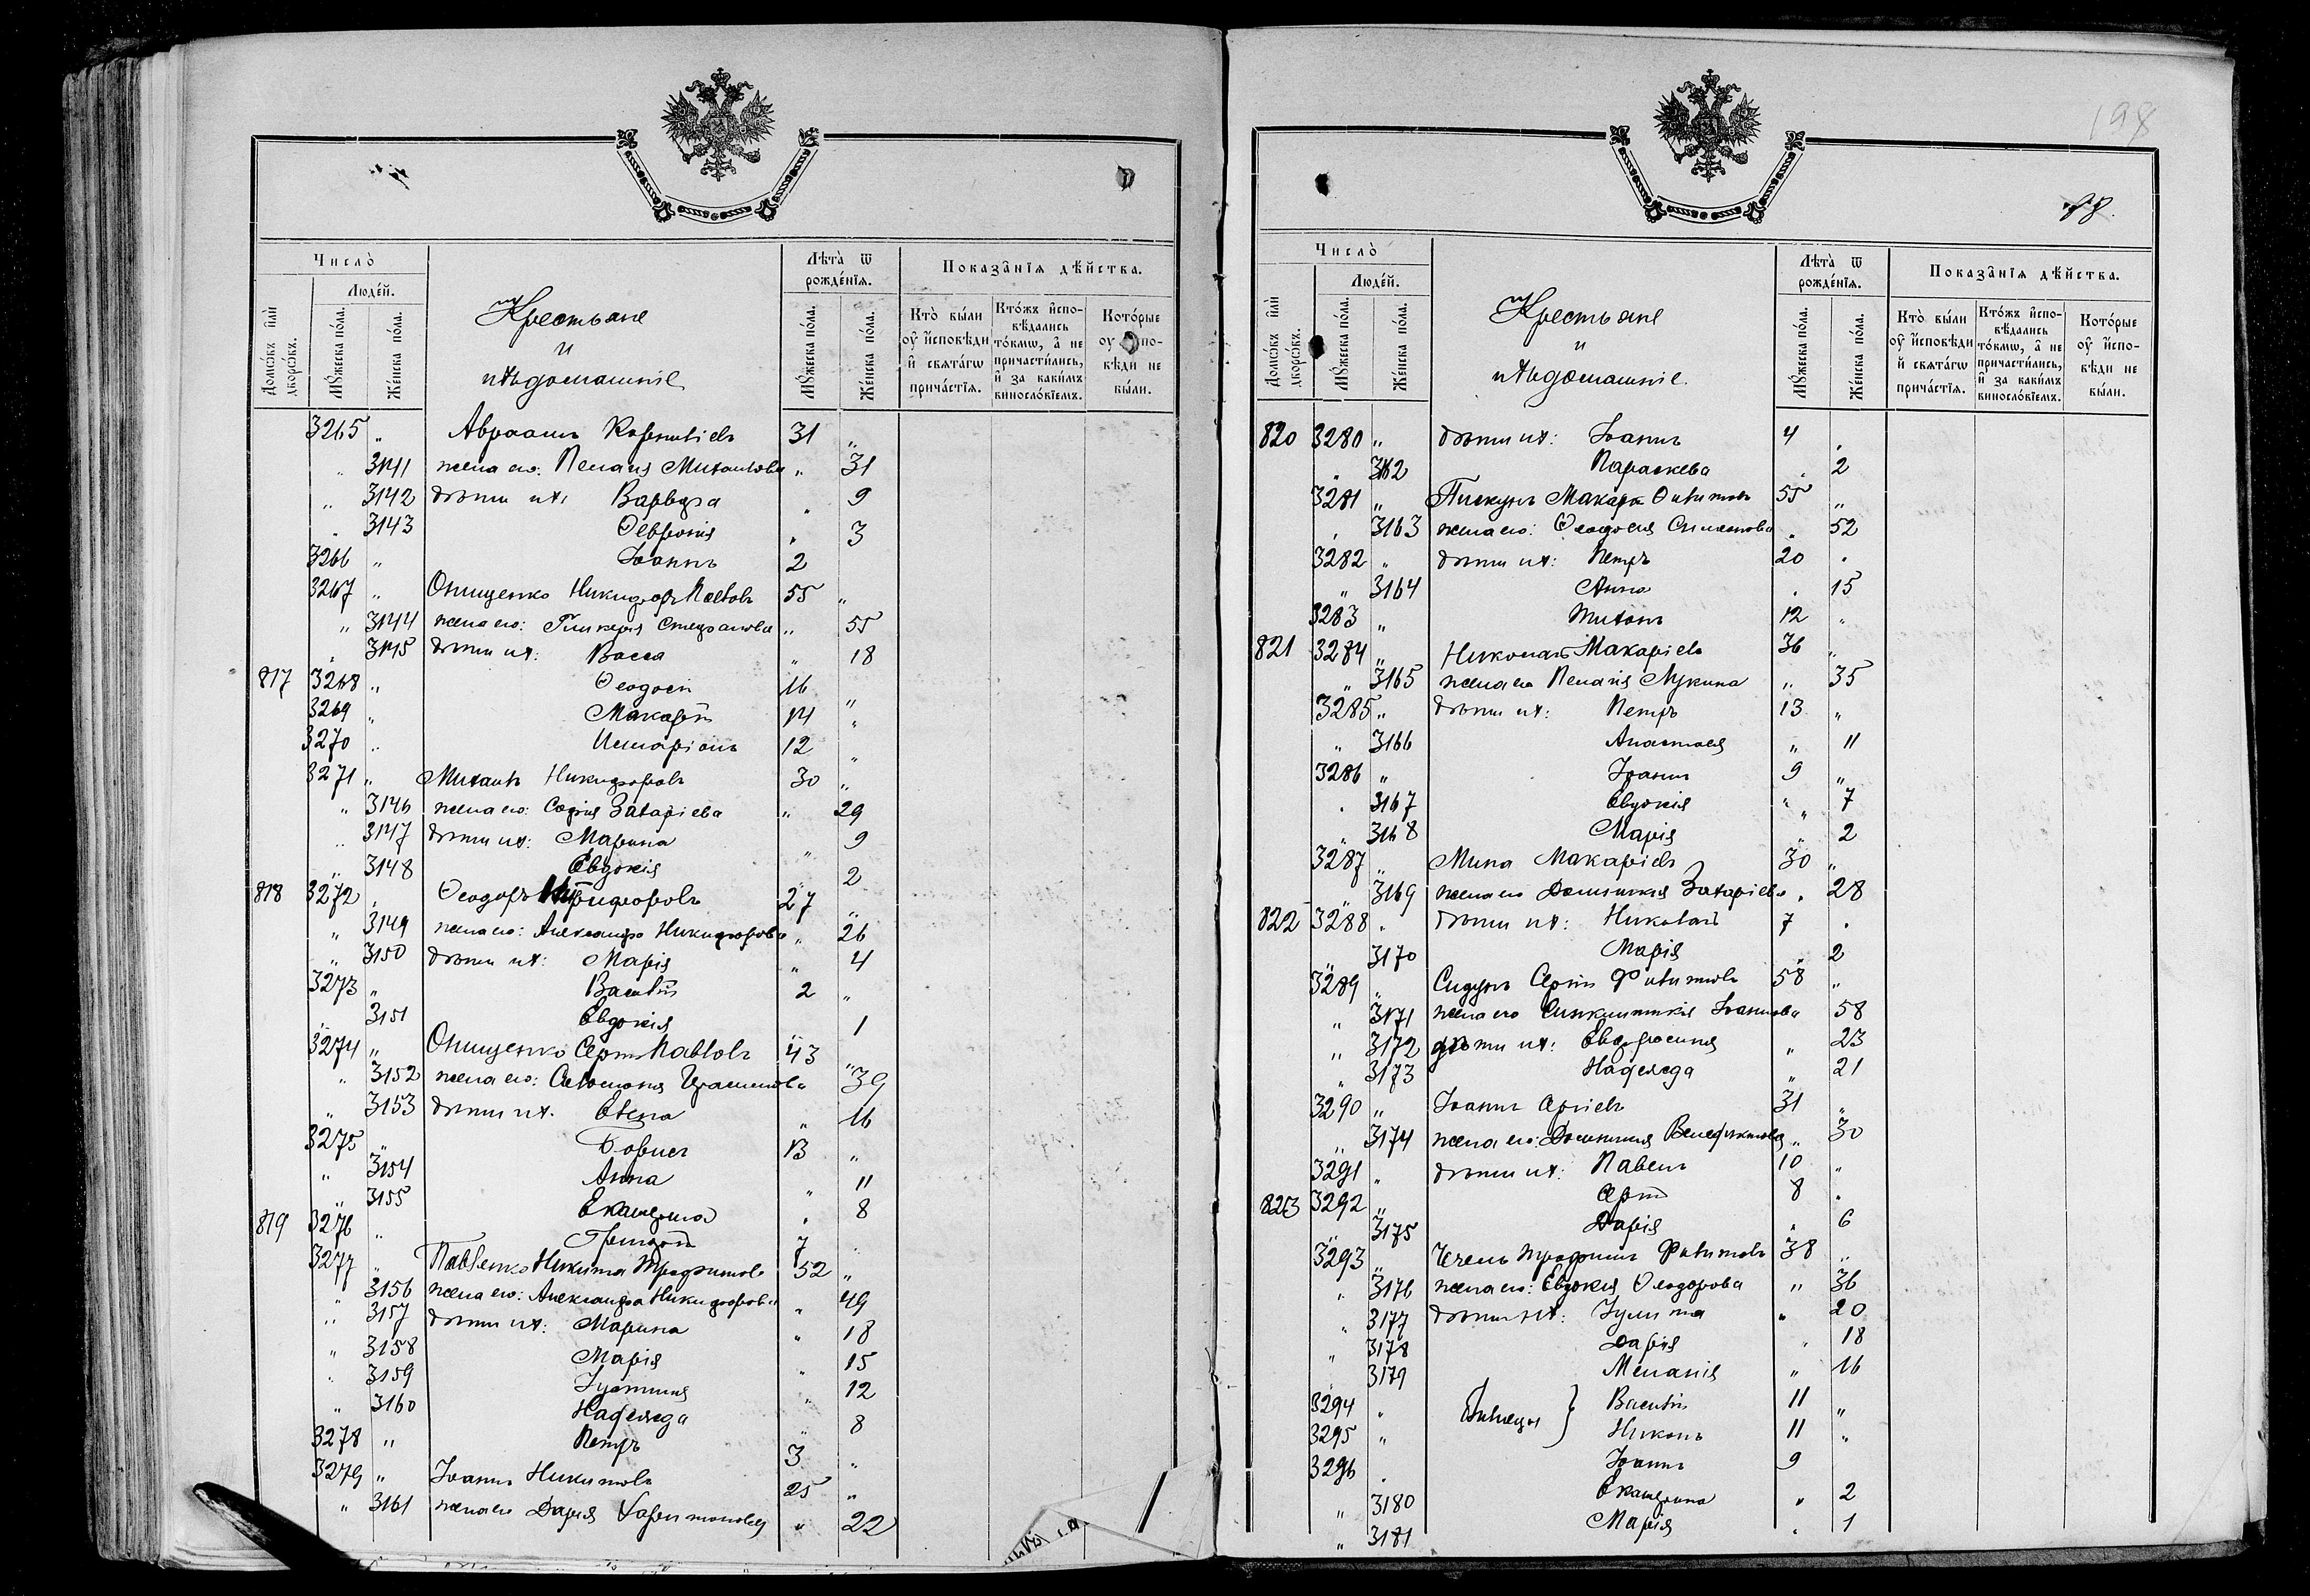 Число̀
Людéй.
Домѡ́въ и҆лѝ дворѡ́въ.
Мꙋ́жеска по́ла.
Же́нска по́ла.
Крестьяне
и
ихъ домашніе
Лѣ́та ѿ рожде́нїѧ.
Мꙋ́жеска по́ла.
Же́нска по́ла.
Показа̑нїѧ дѣ́йства.
Кто̀ бы́ли оу҆ и҆сповѣ́ди и҆ свѧта́гѡ прича́стїѧ.
Кто́жъ и҆сповѣ́дались то́кмѡ, а҆ не причасти́лись, и҆ за каки́мъ винослѡ́вїемъ.
Кото́рые оу҆ и҆сповѣ́ди не бы́ли.
3265 " Авраамъ 31 "
" 3141 жена его: Пелагія Михаилова " 31
" 3142 дѣти ихъ: Варвара " 9
" 3143 Ѳевронія " 3
3266 " Іоаннъ 2
3267 " Онищенко Никифоръ Павловъ 55 "
" 3144 жена его: Гликерія Стефанова " 55
" 3145 дѣти ихъ: Васса " 18
817 3268 " Ѳеодосій 16 "
3269 " Макарій 14 "
3270 " Иларіонъ 12 "
3271 " Михаилъ Никифоровъ 30 "
" 3146 жена его: Софія Захаріева " 29
" 3147 дѣти ихъ: Марина " 9
" 3148 Евдокія " 2
818 3272 " Ѳеодоръ Никифоровъ 27 "
" 3149 жена его: Александра Никифорова " 26
" 3150 дѣти ихъ: Марія " 4
3273 " Василій 2 "
" 3151 Евдокія " 1
3274 " Онищенко Сергій Павловъ 43 "
" 3152 жена его: Соломонія Герасимова 39
" 3153 дѣти ихъ: Елена " 16
3275 " Борисъ 13 "
" 3154 Анна " 11
" 3155 Екатерина " 8
819 3276 " Григорій 7 "
3277 " Павленко Никита Трофимовъ 52 "
" 3156 жена его: Александра Никифорова " 49
" 3157 дѣти ихъ: Марина " 18
" 3158 Марія " 15
" 3159 Іустинія " 12
" 3160 Надежда " 8
3278 " Петръ 3 "
3279 " Іоаннъ Никитовъ 25 "
" 3161 жена его Дарія Харитонова " 22
198
Число̀
Людéй.
Домѡ́въ и҆лѝ дворѡ́въ.
Мꙋ́жеска по́ла.
Же́нска по́ла.
Крестьяне
и
ихъ домашніе.
Лѣ́та ѿ рожде́нїѧ.
Мꙋ́жеска по́ла.
Же́нска по́ла.
Показа̑нїѧ дѣ́йства.
Кто̀ бы́ли оу҆ и҆сповѣ́ди и҆ свѧта́гѡ прича́стїѧ.
Кто́жъ и҆сповѣ́дались то́кмѡ, а҆ не причасти́лись, и҆ за каки́мъ винослѡ́вїемъ.
Кото́рые оу҆ и҆сповѣ́ди не бы́ли.
820 3280 " дѣти ихъ: Іоаннъ 4 "
" 3162 Параскева " 2
3281 " Пискунъ Макарій Филиповъ 55 "
" 3163 жена его: Ѳеодосія Симеонова " 52
3282 " дѣти ихъ: Петръ 20 "
" 3164 Анна " 15
3283 " Тихонъ 12 "
821 3284 " Николай Макаріевъ 36 "
" 3165 жена его Пелагія Лукина " 35
3285 " дѣти ихъ: Петръ 13 "
" 3166 Анастасія " 11
3286 " Іоаннъ 9 "
" 3167 Евдокія " 7
" 3168 Марія " 2
3287 " Мина Макаріевъ 30 "
" 3169 жена его Домникія Захаріева " 28
822 3288 " дѣти ихъ: Николай 7 "
" 3170 Марія " 2
3289 " Сидунъ Сергій Филиповъ 58 "
" 3171 жена его Синклитикія Іоаннова 58
" 3172 дѣти ихъ: Евфросинія " 23
" 3173 Надежда " 21
3290 " Іоаннъ Сергіевъ 31 "
" 3174 жена его: Домникія Венедиктова " 30
3291 " дѣти ихъ: Павелъ 10 "
823 3292 " Сергій 8 "
" 3175 Дарія " 6
3293 " Чечель Трофимъ Филиповъ 38 "
" 3176 жена его: Евдокія Ѳеодорова " 36
" 3177 дѣти ихъ: Іулитта " 20
" 3178 Дарія " 18
" 3179 Меланія " 16
3294 " Близнецы } Василій 11 "
3295 " Никонъ 11 "
3296 " Іоаннъ 9
" 3180 Екатерина " 2
" 3181 Марія " 1